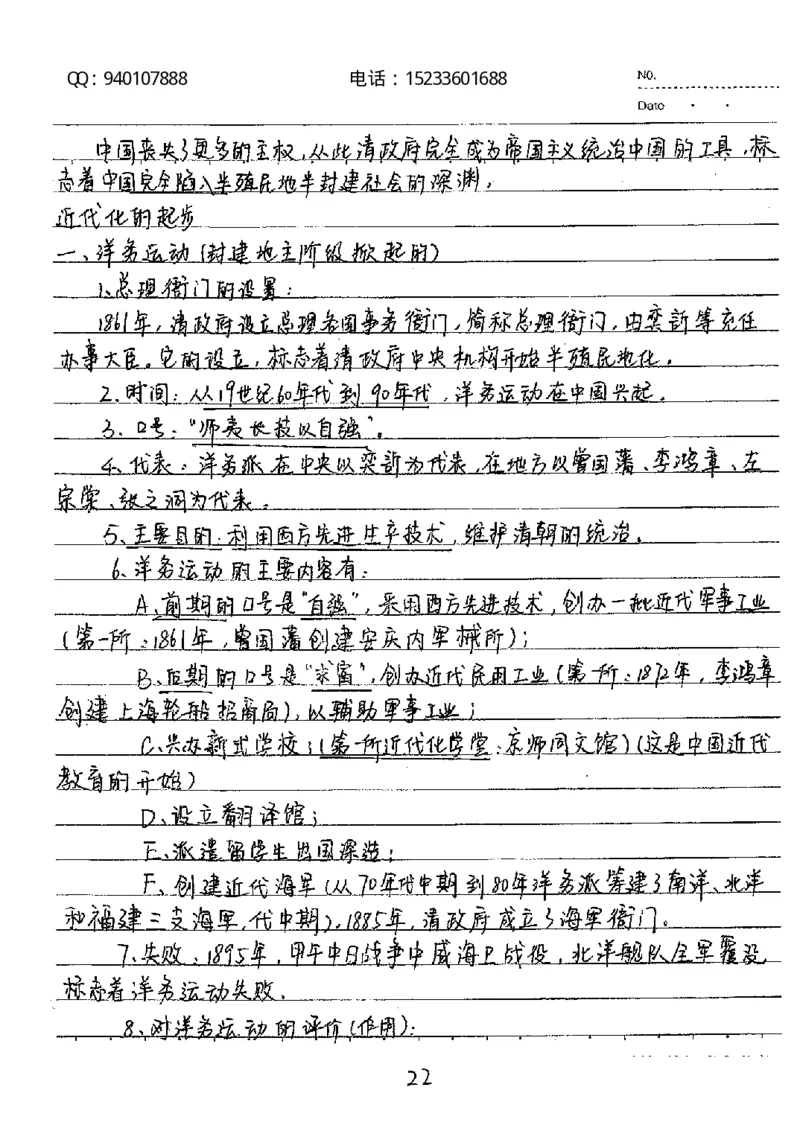 QQ：940107888 电话：15233601688 NO.
Date
中国丧失了更多的主权，从此清政府完全成为帝国主义统治中国的工具，标
志着中国完全陷入半殖民地半封建社会的深渊。
近代化的起步
一、洋务运动（封建地主阶级掀起的）
1、总理衙门的设置：
1861年，清政府设立总理各国事务衙门，简称总理衙门，由奕訢等充任
办事大臣。它的设立，标志着清政府中央机构开始半殖民地化。
2、时间：从19世纪60年代到90年代，洋务运动在中国兴起。
3、口号：“师夷长技以自强”。
4、代表：洋务派在中央以奕訢为代表，在地方以曾国藩、李鸿章、左
宗棠、张之洞为代表。
5、主要目的：利用西方先进生产技术，维护清朝的统治。
6、洋务运动的主要内容有：
A、前期的口号是“自强”，采用西方先进技术，创办一批近代军事工业
（第一所：1861年，曾国藩创建安庆内军械所）；
B、后期的口号是“求富”，创办近代民用工业（第一所：1872年，李鸿章
创建上海轮船招商局），以辅助军事工业；
C、兴办新式学校；（第一所近代化学堂：京师同文馆）（这是中国近代
教育的开始）
D、设立翻译馆；
E、派遣留学生出国深造；
F、创建近代海军（从70年代中期到80年洋务派筹建了南洋、北洋
和福建三支海军，代中期），1885年，清政府成立了海军衙门。
7、失败：1895年，甲午中日战争中威海卫战役，北洋舰队全军覆没，
标志着洋务运动失败。
8、对洋务运动的评价（作用）：
22